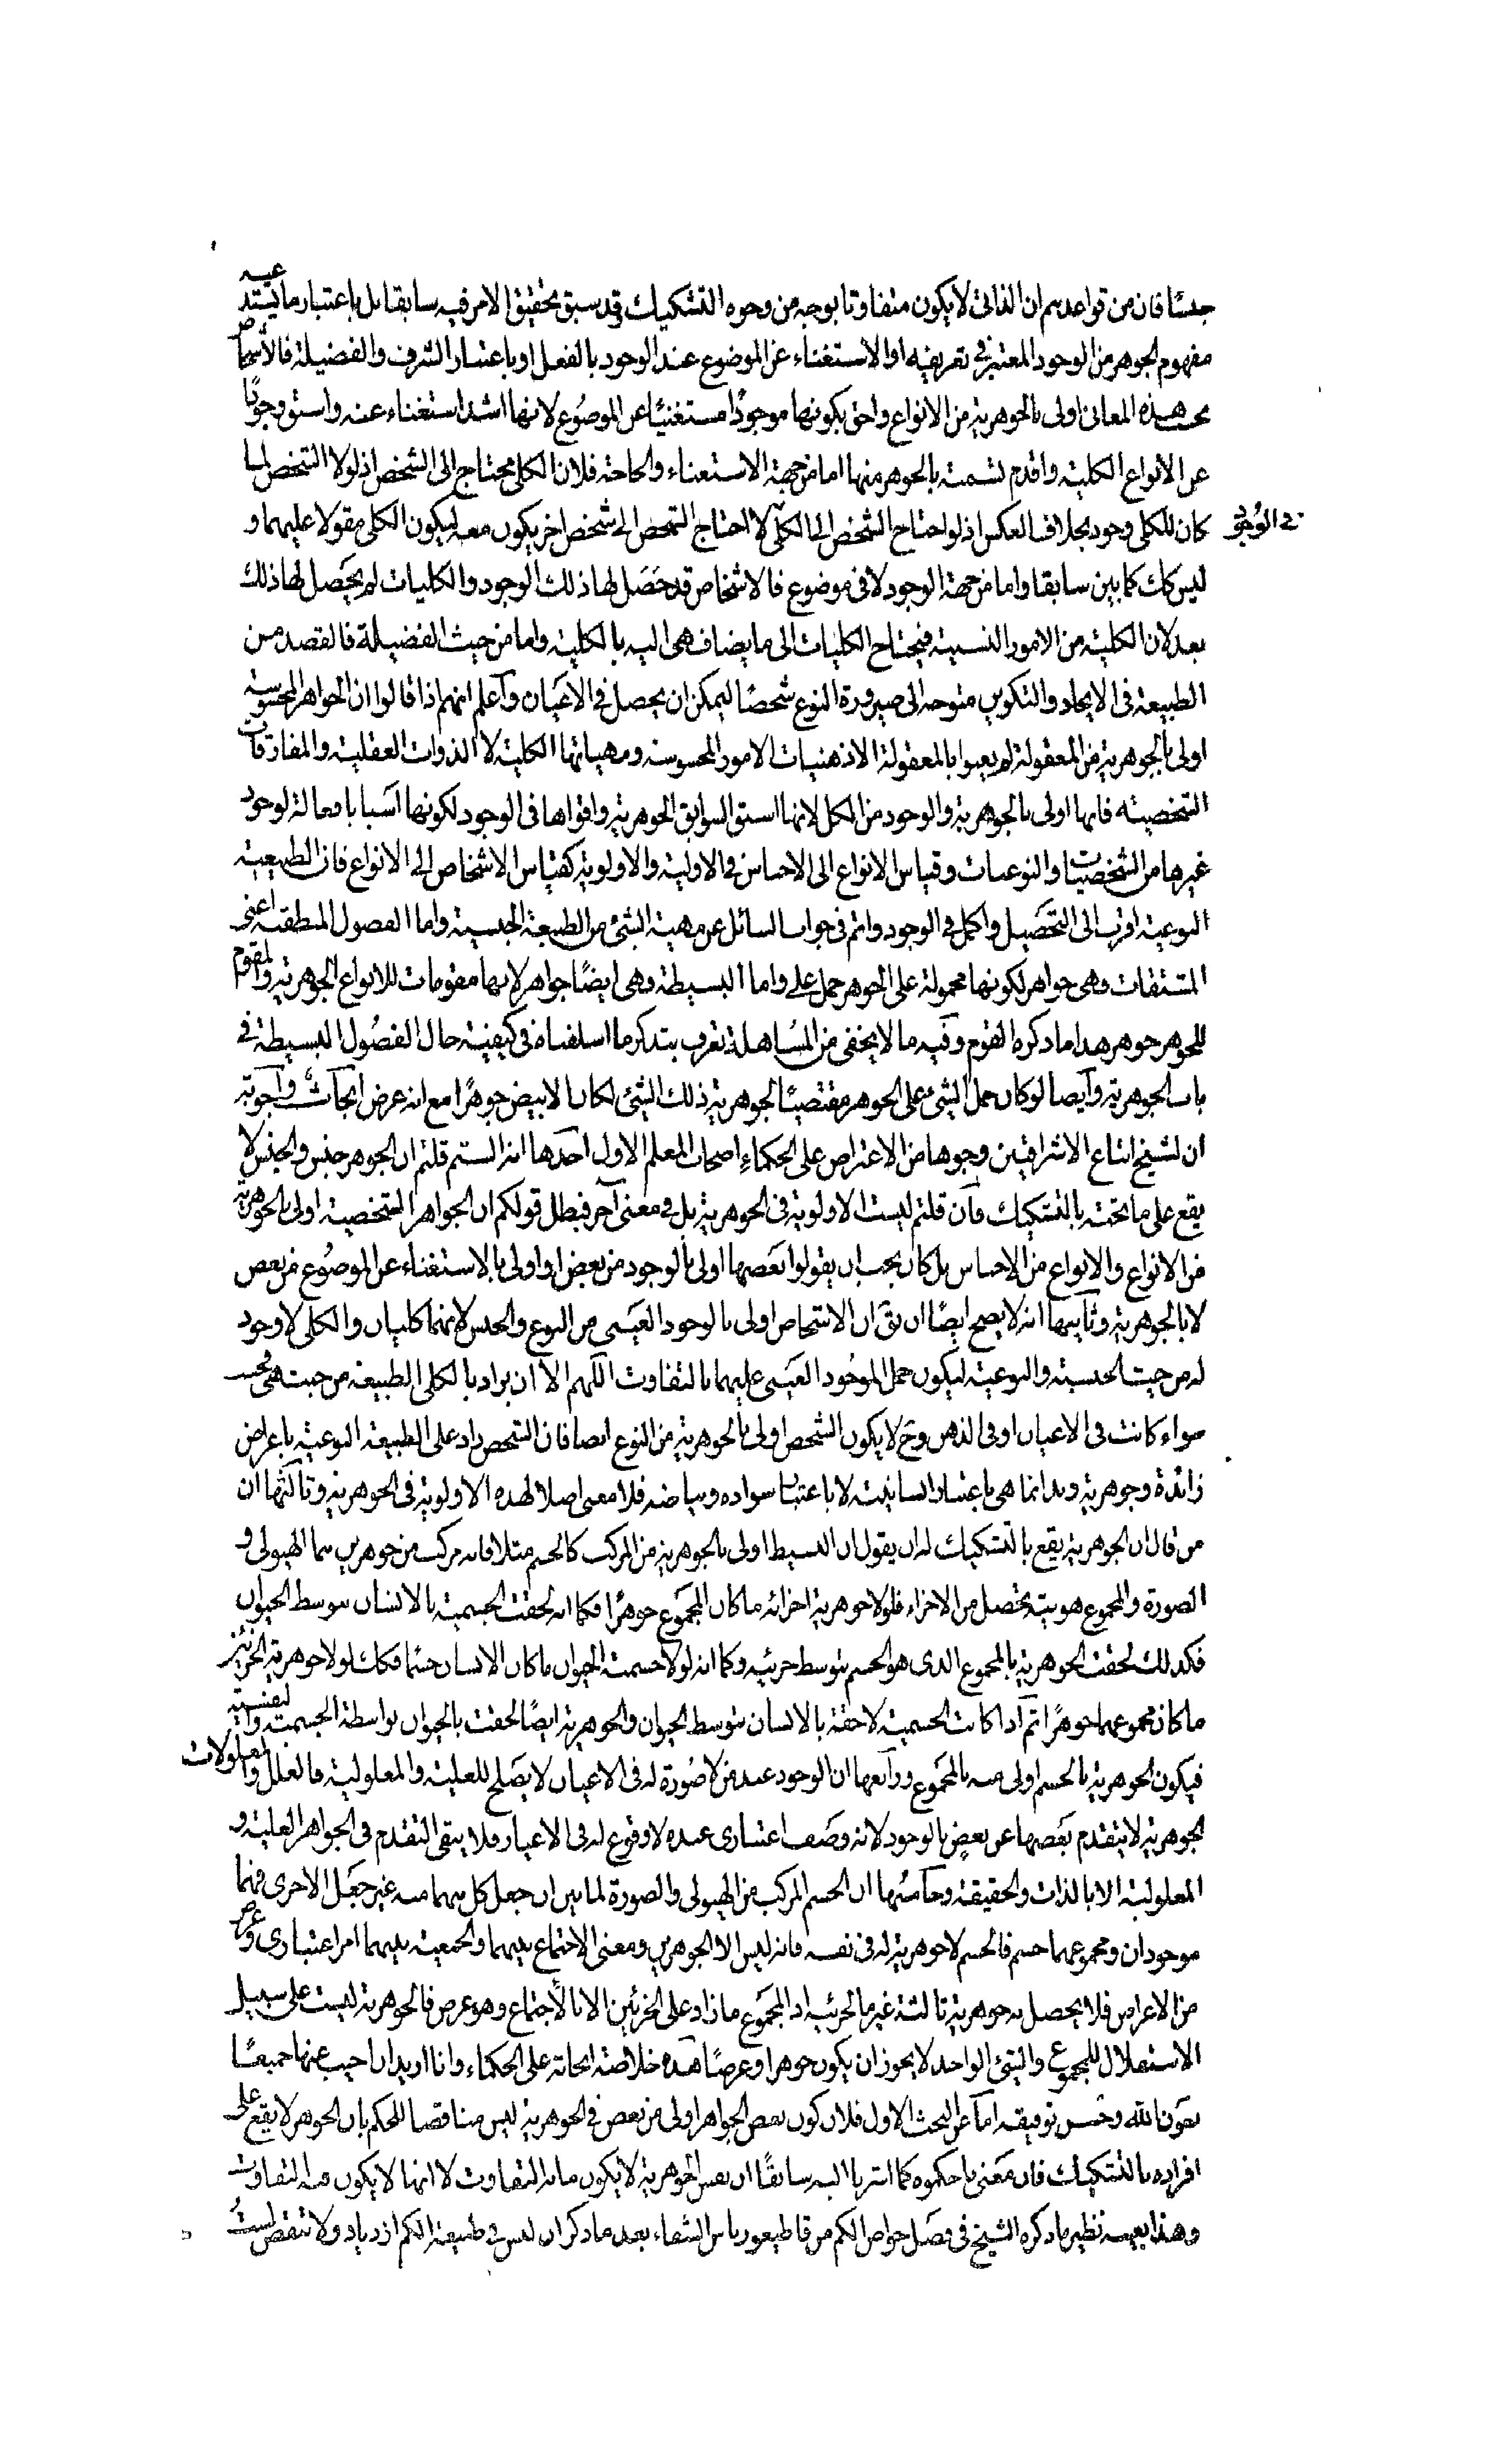 جنسًا فان من قواعدهم ان الذاتى لا يكون متفاوتا بوجه من وحوه التشكيك قد سبق تحقيق الامر فيه سابقا بل باعتبار ما يستدعيه
مفهوم الجوهر من الوجود المعتبر فى تعريفه او الاستغناء عن الموضوع عند الوجود بالفعل او باعتبار الشرف والفضيلة فالأشخاص
بحسب هذه المعانى اولى بالجوهرية من الانواع واحق بكونها موجودًا مستغنيًا عن الموضوع لانها اشد استغناء عنه واسبق وجودًا
عن الانواع الكلية واقدم تسمية بالجوهر منها اما من جهة الاستغناء والحاجة فلان الكلى محتاج الى الشخص اذ لولا الشخص لما
كان للكلى وجود بخلاف العكس اذ لو احتاج الشخص الى الكلى لاحتاج الشخص الى شخص اخر يكون معه ليكون الكلى مقولا عليهما و
فى الوجود
ليس كك كما بين سابقا واما من جهة الوجود لا فى موضوع فالاشخاص قد حصل لها ذلك الوجود والكليات لم يحصل لها ذلك
بعد لان الكلية من الامور النسبية فيحتاج الكليات الى ما يضاف هى اليه بالكلية واما من حيث الفضيلة فالقصد من
الطبيعة فى الايجاد والتكوين متوجه الى صيرورة النوع شخصًا ليمكن ان يحصل فى الاعيان واعلم انهم اذا قالوا ان الجواهر المحسوسة
اولى بالجوهرية من المعقولة لم يعنوا بالمعقولة الا ذهنيات الامور المحسوسة ومهياتها الكلية لا الذوات العقلية والمفارقات
الشخصيته فانها اولى بالجوهرية والوجود من الكل لانها اسبق السوابق الجوهرية واقواها فى الوجود لكونها اسبابا فعالة لوجود
غيرها من الشخصيات والنوعيات وقياس الانواع الى الاجناس فى الاولية والاولوية كقياس الاشخاص الى الانواع فان الطبيعية
النوعية اقرب الى التحصيل واكمل فى الوجود واتم فى جواب السائل عن مهية الشئ من الطبيعة الجنسية واما الفصول المنطقية اعنى
المشتقات وهى جواهر لكونها محمولة على الجوهر حمل على واما البسيطة وهى ايضًا جواهر لانها مقومات للانواع الجوهرية والمقوم
للجوهر جوهر هذا ما ذكره القوم وفيه ما لا يخفى من المساهلة تعرف بتذكر ما اسلفناه فى كيفية حال الفصول البسيطة فى
باب الجوهرية وايضا لو كان حمل الشئ على الجوهر مقتضيًا لجوهرية ذلك الشئ لكان الابيض جوهرًا مع انه عرض ابحاث واجوبة
ان لشيخ اتباع الاشراقيين وجوها من الاعتراض على الحكماء اصحاب المعلم الاول احدها انه الستم قلتم ان الجوهر جنس والجنس لا
يقع على ما تحته بالتشكيك فان قلتم ليست الاولوية فى الجوهرية بل فى معنى آخر فبطل قولكم ان الجواهر الشخصية اولى بالجوهرية
من الانواع والانواع من الاجناس بل كان يجب ان يقولوا بعضها اولى بالوجود من بعض او اولى بالاستغناء عن الموضوع من بعض
لا بالجوهرية وثانيها انه لا يصح ايضًا ان يق ان الاشخاص اولى بالوجود العينى من النوع والجنس لانهما كليان والكلى لا وجود
له من حيث الجنسية والنوعية ليكون حمل الموجود العينى عليهما بالتفاوت اللهم الا ان يراد بالكلى الطبيعة من حيث هى فحسب
سواء كانت فى الاعيان او فى الذهن وح لا يكون الشخص اولى بالجوهرية من النوع ايضا فان الشخص زاد على الطبيعة النوعية باعراض
زائدة وجوهرية زيد انما هى باعتبار انسانيته لا باعتبار سواده وبياضه فلا معنى اصلا لهذه الاولوية فى الجوهرية وثالثها ان
من قال ان الجوهرية يقع بالتشكيك له ان يقول ان البسيط اولى بالجوهرية من المركب كالجسم مثلا فانه مركب من جوهرين هما الهيولى و
الصورة والمجموع هويته يحصل من الاجزاء فلولا جوهرية اجزائه ما كان المجموع جوهرًا فكما انه لحقت الجسمية بالانسان بتوسط الحيوان
فكذلك لحقت الجوهرية بالمجموع الذى هو الجسم بتوسط جزئيه وكما انه لولا جسمية الحيوان ما كان الانسان جسمًا فكك لولا جوهرية الجزئين
ما كان مجموعهما جوهرًا ثم اذا كانت الجسمية لاحقة بالانسان بتوسط الحيوان والجوهرية ايضًا لحقت بالحيوان بواسطة الجسمية والنفسية
فيكون الجوهرية بالجسم اولى منه بالمجموع ورابعها ان الوجود عند من لا صورة له فى الاعيان لا يصلح للعلية والمعلولية فالعلل والمعلولات
الجوهرية لا يتقدم بعضها عن بعض بالوجود لانه وصف اعتبارى عنده لا وقوع له فى الاعيان فلا يبقى التقدم فى الجواهر العلية و
المعلولية الا بالذات والحقيقة وخامسها ان الجسم المركب من الهيولى والصورة لما بين ان جعل كل منهما منه غير جعل الاخرى فهما
موجودان ومجموعهما جسم فالجسم لا جوهرية له فى نفسه فانه ليس الا الجوهرين ومعنى الاجتماع بينهما والجمعية بينهما امر اعتبارى وعرض
من الاعراض فلا يحصل به جوهرية ثالثة غير ما لجزئيه اذ المجموع ما زاد على الجزئين الا بالاجتماع وهو عرض فالجوهرية ليست على سبيل
الاستقلال للمجموع والشئ الواحد لا يجوز ان يكون جوهرا وعرضًا هذه خلاصة ابحاثه على الحكماء وانا اريد ان اجيب عنها جميعًا
بعون الله وحسن توفيقه اما عن البحث الاول فلان كون بعض الجواهر اولى من بعض فى الجوهرية ليس مناقضا للحكم بان الجوهر لا يقع على
افراده بالتشكيك فان معنى ما حكموه كما اشرنا اليه سابقًا ان نفس الجوهرية لا يكون ما به التفاوت لا انها لا يكون فيه التفاوت
وهذا بعينه نظير ما ذكره الشيخ فى فصل خواص الكم من قاطيغورياس الشفاء بعد ما ذكر ان ليس فى طبيعة الكم ازدياد ولا تنقص لست